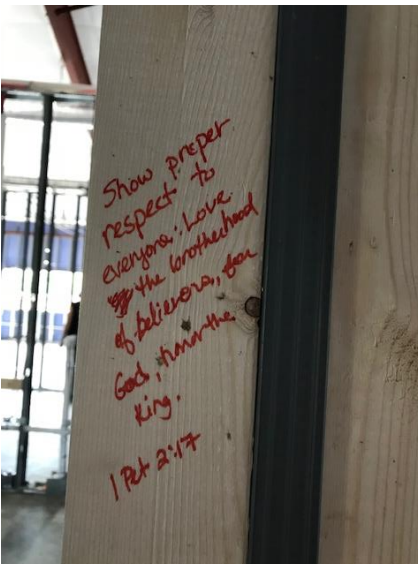 Show proper
respect to
everyone. Love
the brotherhood
of believers, fear
God, honor the
King.
1 Pet 2:17